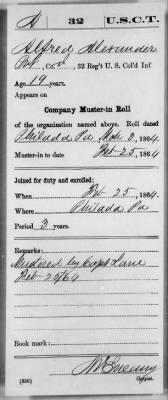 A 32 U.S.C.T.
Alfred Alexander
Pvt., Co., 32 Reg't U.S. Col'd Inf.
Age 19 years.
Appears on
Company Muster-in Roll
of the organization named above. Roll dated
Philada Pa, Mch 2, 1864.
Muster-in to date Feb 25, 1864
Joined for duty and enrolled:
When Feb 25, 1864.
Where Philada Pa
Period 3 years.
Remarks:
Mustered by Capt Lane
Feb 25/64
Book mark:
(356) Copyist.